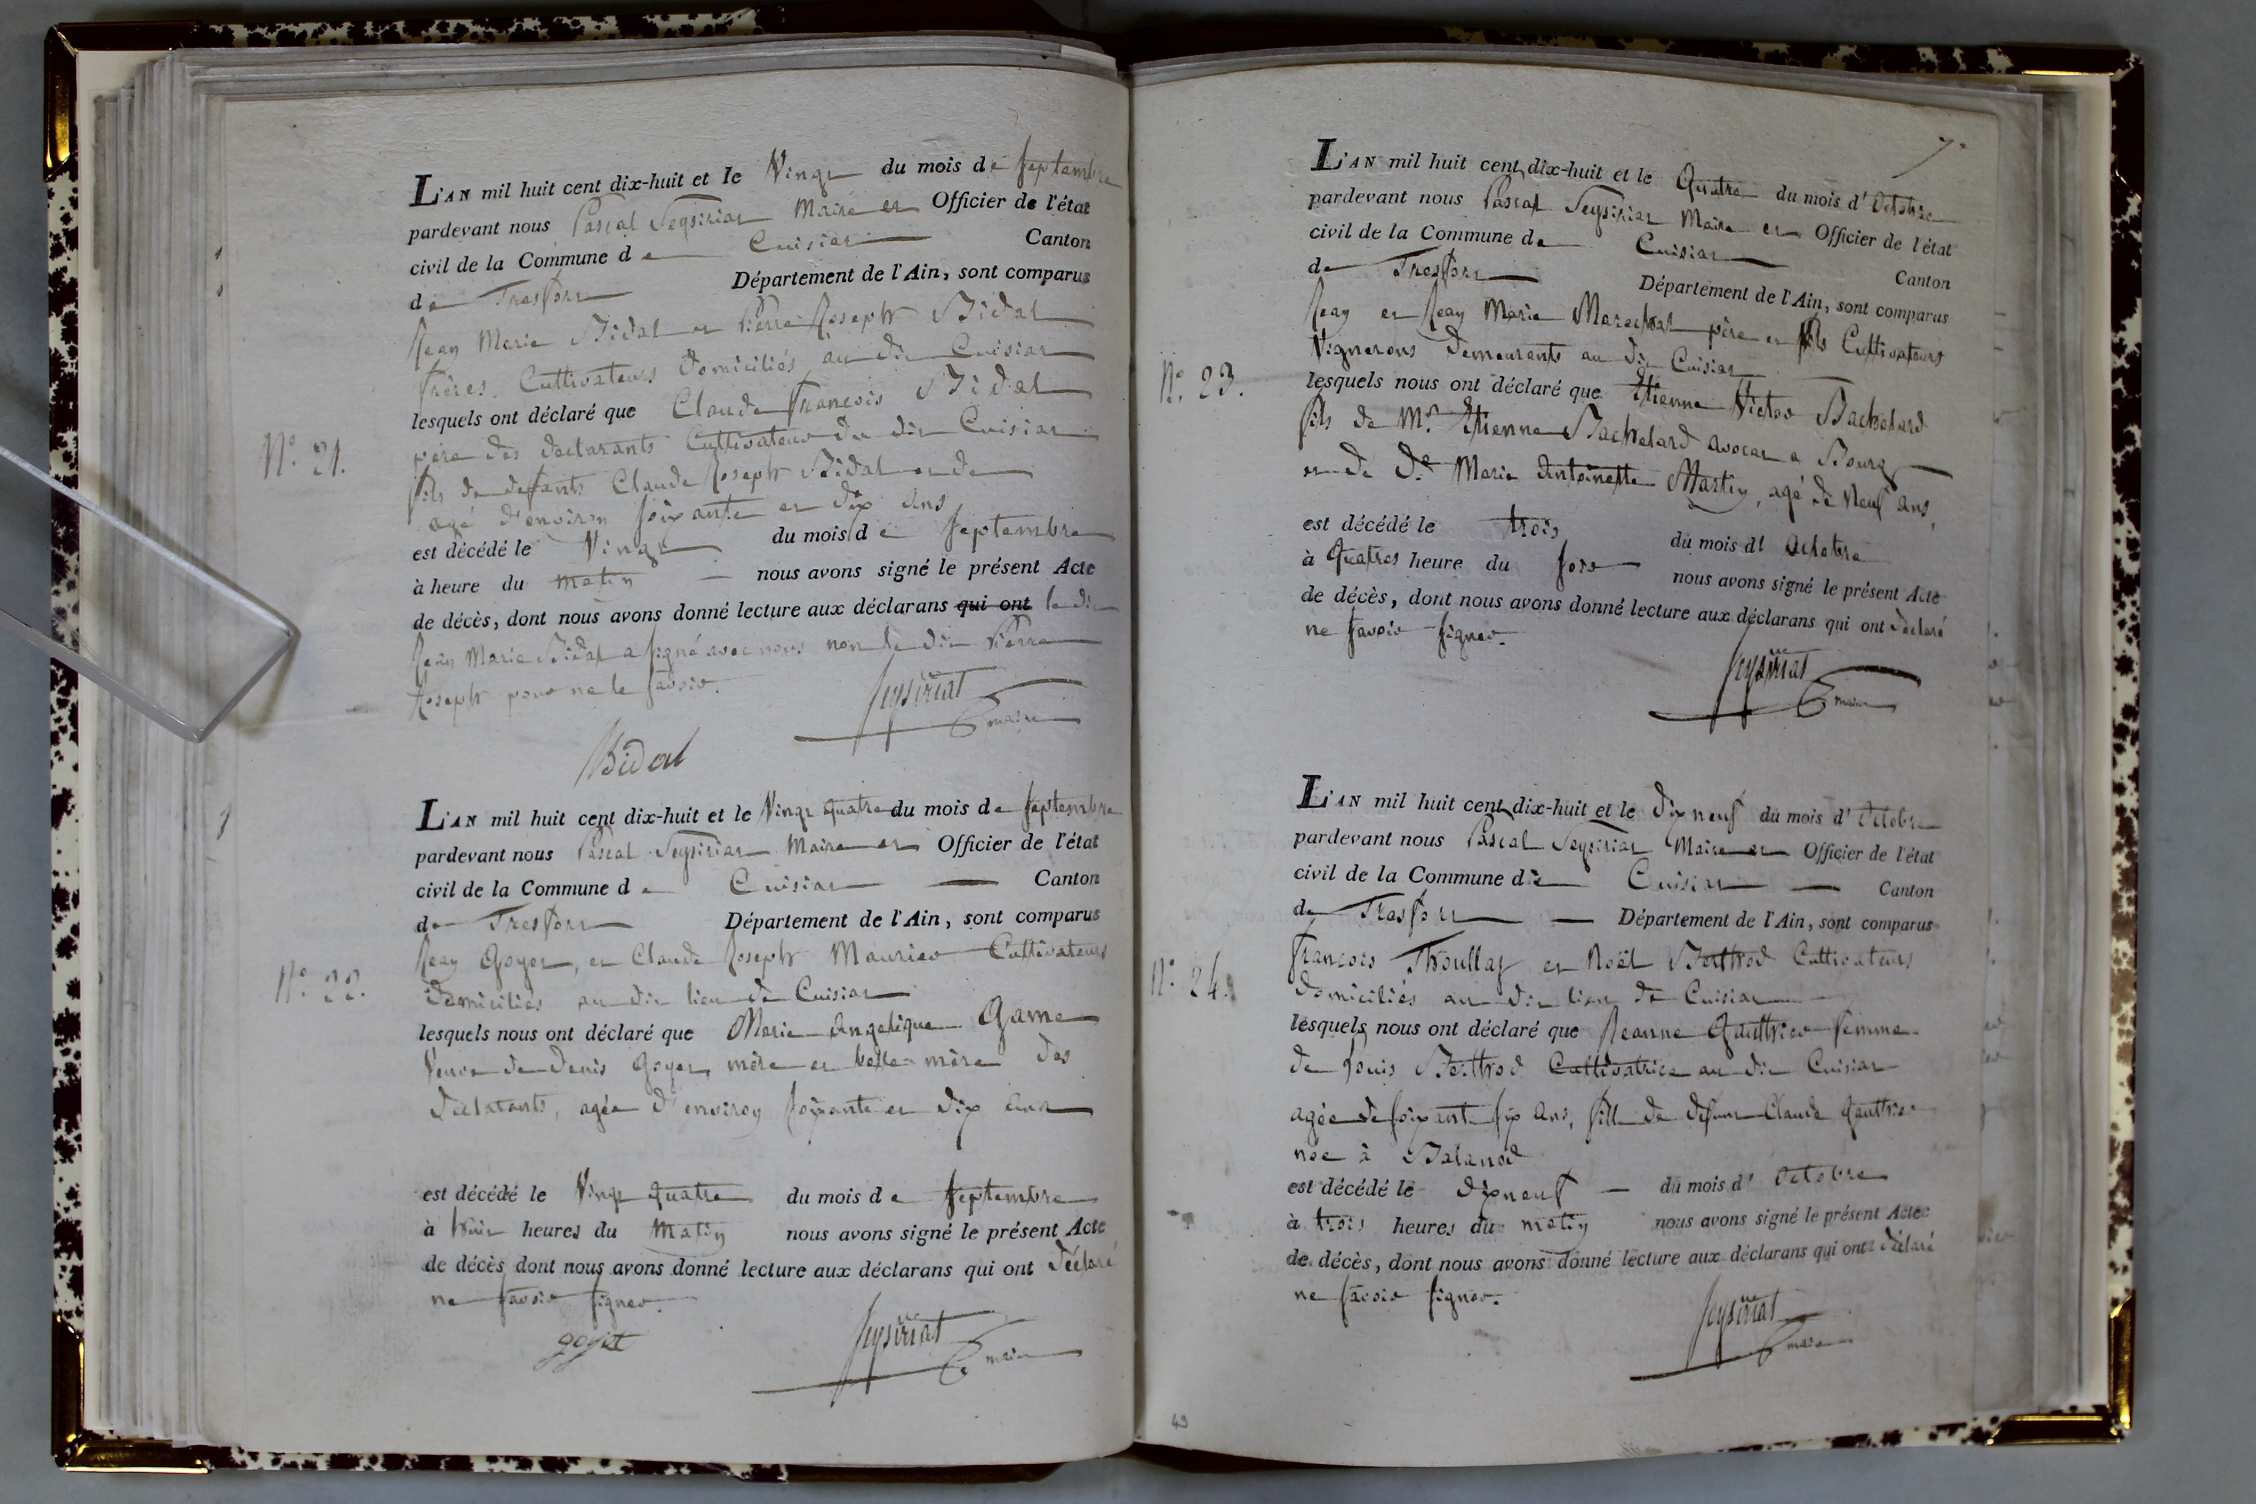 L'AN mil huit cent dix-huit et le Vingt du mois de Septembre
pardevant nous Pascal Seysiriat Maire et Officier de l'état
civil de la Commune de Cuisiat Canton
de Treffort Département de l'Ain, sont comparus
Jean Marie Bidal et Pierre Joseph Bidal
frères Cultivateurs domiciliés au dit Cuisiat
lesquels ont déclaré que Claude François Bidal
N°. 21.
père des declarants Cultivateur du dit Cuisiat
fils de defunts Claude Joseph Bidal et de
agé d'environ soixante et dix ans
est décédé le Vingt du mois de Septembre
à heure du matin nous avons signé le présent Acte
de décès, dont nous avons donné lecture aux déclarans qui ont le dit
Jean Marie Bidal a signé avec nous non le dit Pierre
Joseph pour ne le savoir.
Seysiriat
maire
Bidal
L'AN mil huit cent dix-huit et le Vingt quatre du mois de Septembre
pardevant nous Pascal Seysiriat Maire et Officier de l'état
civil de la Commune de Cuisiat Canton
de Treffort Département de l'Ain, sont comparus
Jean Goyet, et Claude Joseph Maurier Cultivateurs
N°. 22.
domiciliés au dit lieu de Cuisiat
lesquels nous ont déclaré que Marie Angelique Game
Veuve de Denis Goyet, mère et belle mère des
déclarants, agée d'environ soixante et dix ans
est décédé le Vingt quatre du mois de Septembre
à huit heures du Matin nous avons signé le présent Acte
de décès dont nous avons donné lecture aux déclarans qui ont déclaré
ne savoir signer.
goyet
Seysiriat
maire
7.
L'AN mil huit cent dix-huit et le Quatre du mois d'Octobre
pardevant nous Pascal Seysiriat Maire et Officier de l'état
civil de la Commune de Cuisiat Canton
de Treffort Département de l'Ain, sont comparus
Jean et Jean Marie Marechal père et fils Cultivateurs
Vignerons demeurants au dit Cuisiat
N°. 23.
lesquels nous ont déclaré que Etienne Victor Bachelard
fils de Mr. Etienne Bachelard avocat a Bourg
et de De. Marie Antoinette Martin, agé de Neuf ans,
est décédé le trois du mois d'Octobre
à Quatres heure du soir nous avons signé le présent Acte
de décès, dont nous avons donné lecture aux déclarans qui ont déclaré
ne savoir signer.
Seysiriat
maire
L'AN mil huit cent dix-huit et le dixneuf du mois d'Octobre
pardevant nous Pascal Seysiriat Maire et Officier de l'état
civil de la Commune de Cuisiat Canton
de Treffort Département de l'Ain, sont comparus
François et Noël Berthod Cultivateurs
N°. 24.
domiciliés au dit lieu de Cuisiat
lesquels nous ont déclaré que Jeanne Gauthier femme
de Louis Berthod Cultivatrice au dit Cuisiat
agée de soixant six ans, fille de defunt Claude Gauthier
née à Balanod
est décédé le dixneuf du mois d'Octobre
à trois heures du matin nous avons signé le présent Acte
de décès, dont nous avons donné lecture aux déclarans qui ont déclaré
ne savoir signer.
Seysiriat
maire
49